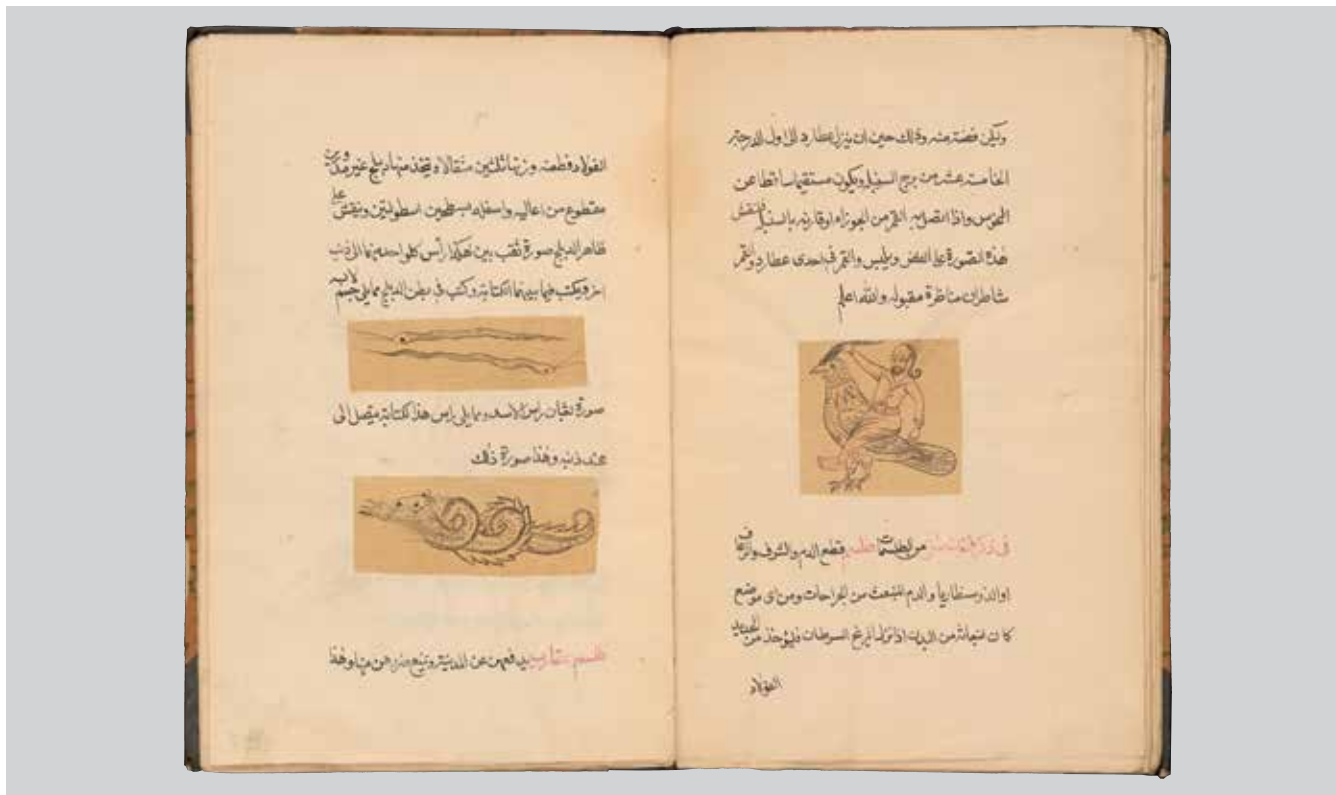 وليكن فضته منه وذلك حين ان ينزل عطارد الى اول الدرجة
الخامسة عشر من برج السنبلة ويكون مستقيما ساقطا عن
النحوس واذا اتصل به القمر من الجوزاء او قارنه بالسنبلة فلينقش
هذه الصورة على الفص ويلبس والقمر في احدى عطارد والقمر
مناظرة مقبوله والله اعلم
من الطلسمات طلسم قطع الدم والنزف والرعاف
او الدوسنطاريا والدم المنبعث من الجراحات ومن اى موضع
كان انبعاثه من البدن اذا نزل المريخ السرطان فليؤخذ من الحديد
الفولاد
الفولاد قطعة وزنها ثلثين مثقالا ويتخذ منها دملج غير مدور
مقطوع من اعاليه واسفله بسطحين اسطوانتين وينقش على
ظاهر الدملج صورة ثعبانين هكذا رأس كل واحد منهما الى ذنب
اخر ويكتب فيما بينهما الكتابة وكتب في بطن الدملج مما يلي جسم لابسه
صورة ثعبان راس الاسد ومما يلى راس هذا الكتابة متصل الى
عند ذنبه وهذا صورة ذلك
طلسم عقارب يدفعهن عن المدينة ويمنع ضررهن منها وهذا